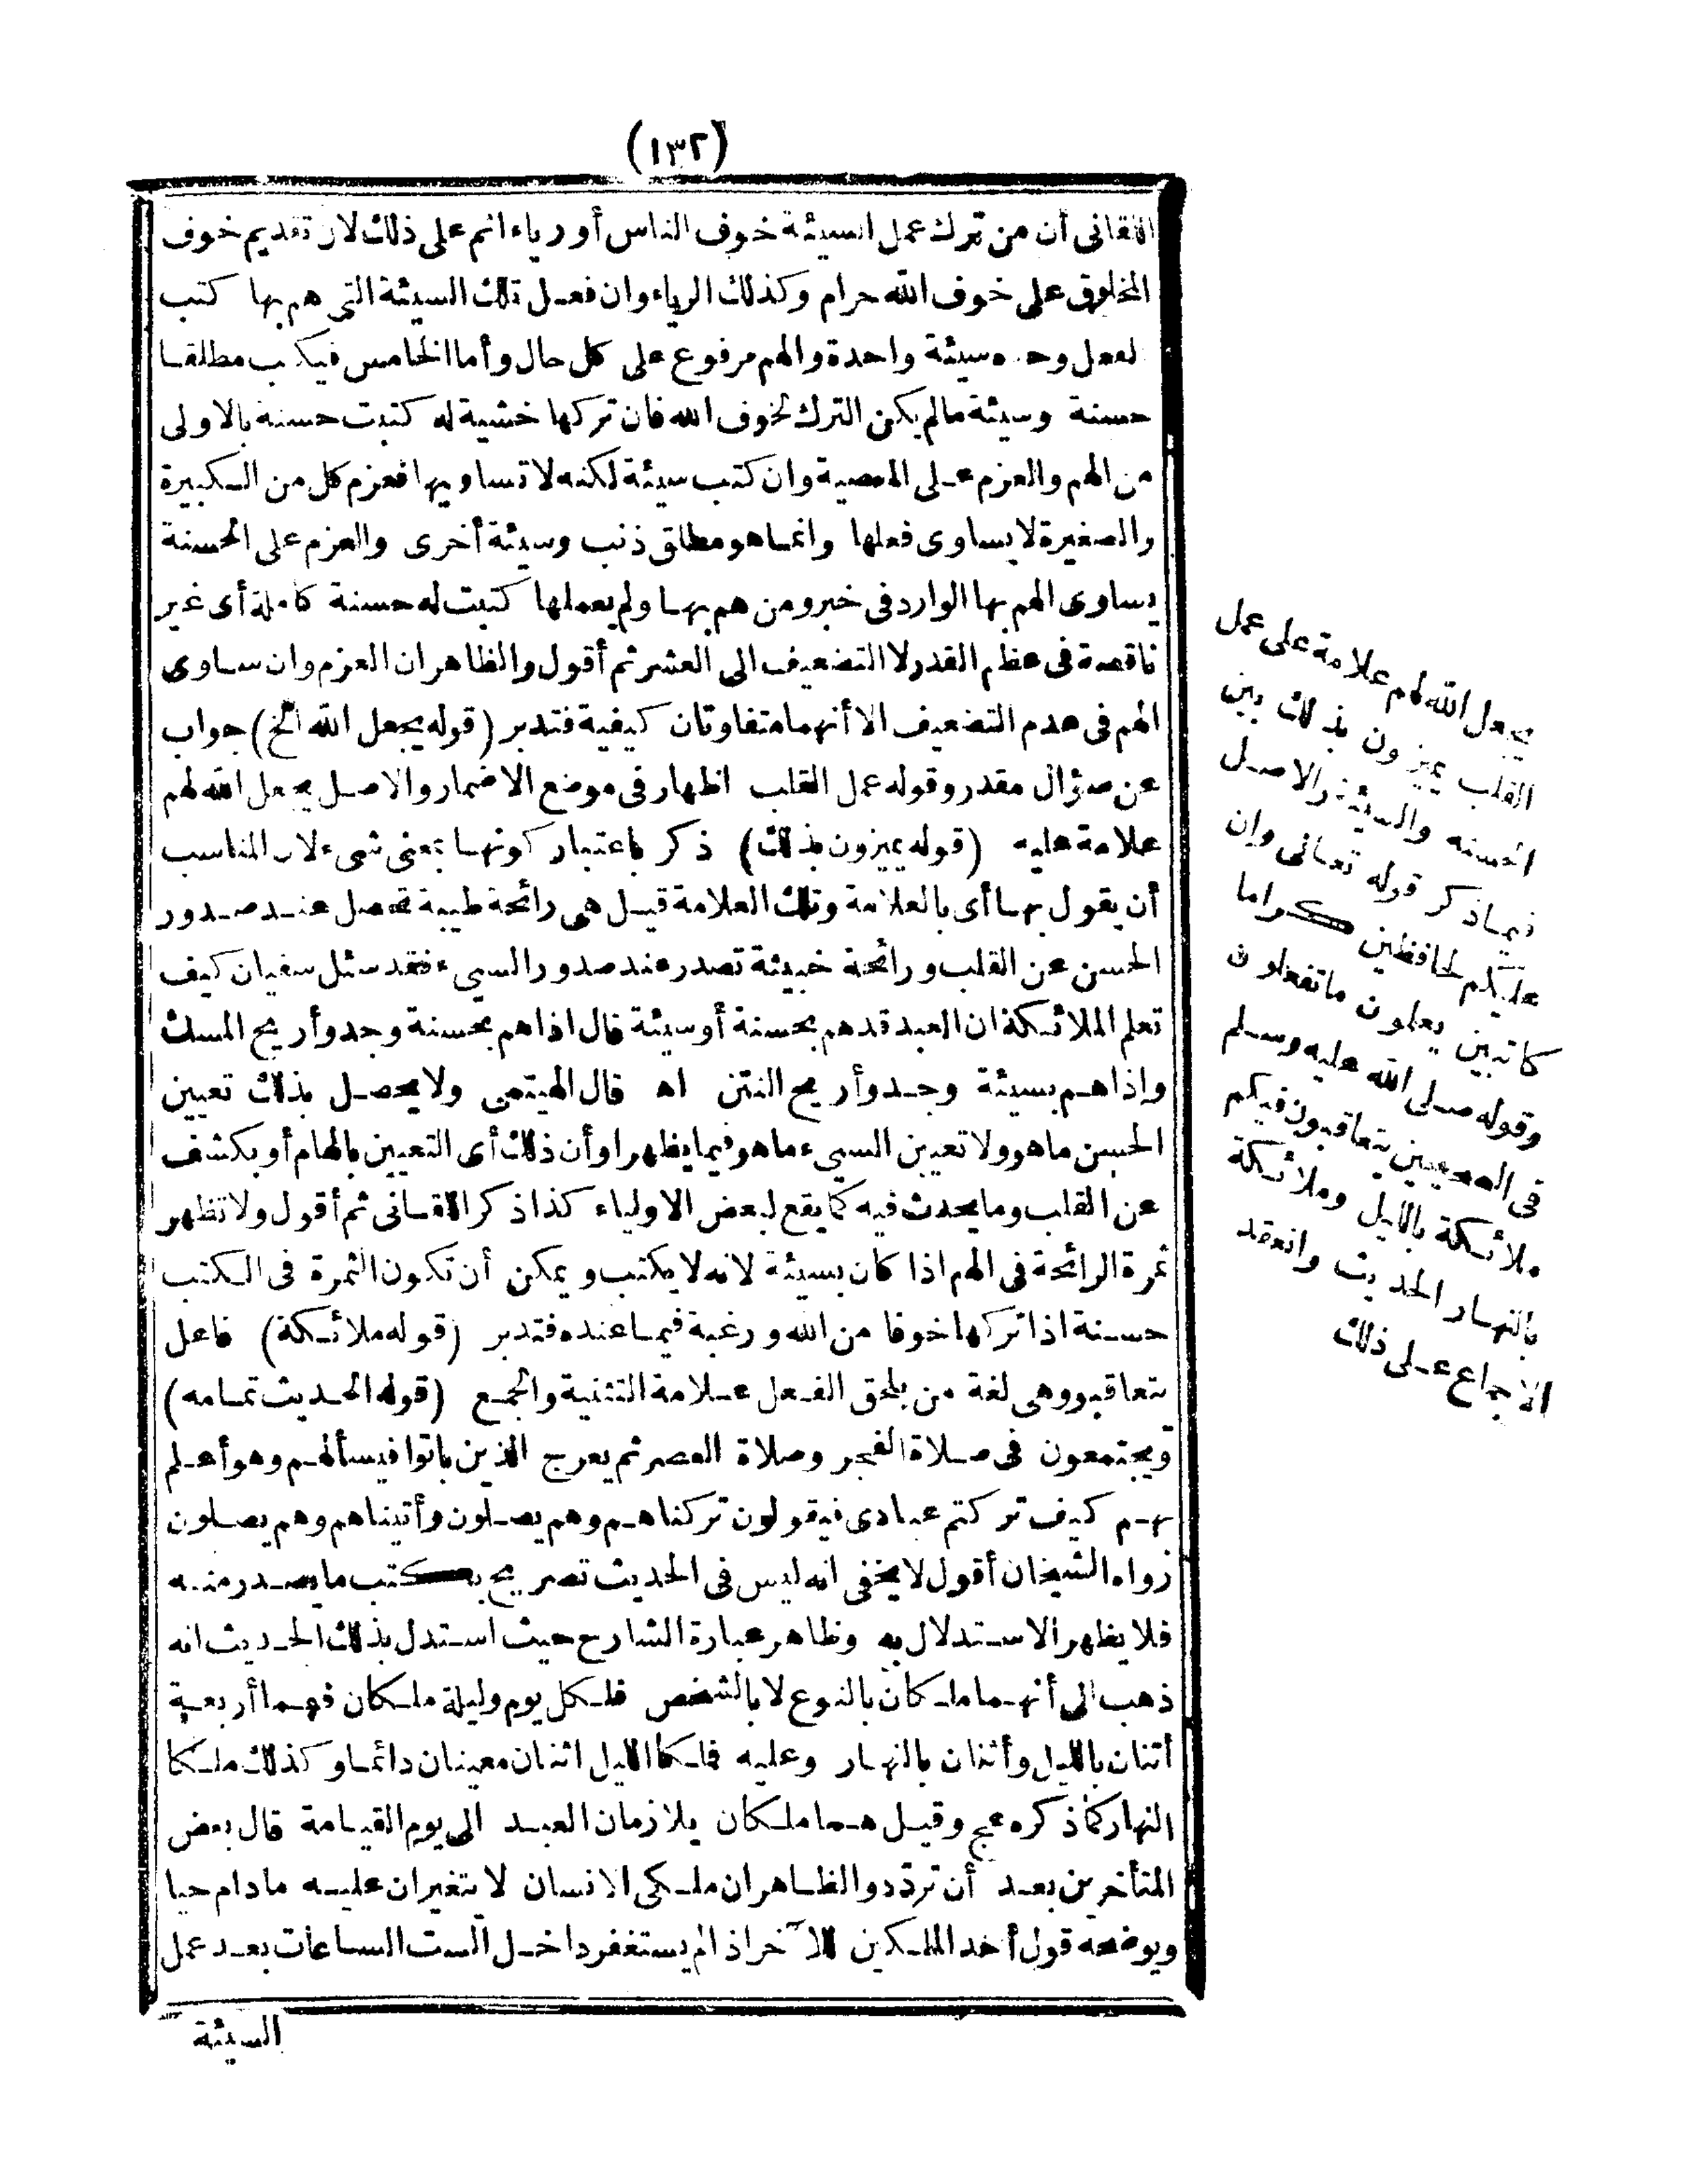 (١٣٢)
اللقانى أن من ترك عمل السيئة خوف الناس أو رياء اثم على ذلك لان تقديم خوف
المخلوق على خوف الله حرام وكذلك الرياء وان فعل تلك السيئة التى هم بها كتب
لفعل وحده سيئة واحدة والهم مرفوع على كل حال وأما الخامس فيكتب مطلقا
حسنة وسيئة مالم يكن الترك لخوف الله فان تركها خشية له كتبت حسنة بالاولى
من الهم والعزم على المعصية وان كتب سيئة لكنه لا تساويها فعزم كل من الكبيرة
والصغيرة لا يساوى فعلها وانما هو مطلق ذنب وسيئة أخرى والعزم على الحسنة
يساوى الهم بها الوارد فى خبر ومن هم بها ولم يعملها كتبت له حسنة كاملة أى غير
ناقصة فى عظم القدر لا التضعيف الى العشر ثم أقول والظاهر ان العزم وان ساوى
الهم فى عدم التضعيف الا أنهما متفاوتان كيفية فتدبر (قوله يجعل الله الخ) جواب
عن سؤال مقدر وقوله عمل القلب اظهار فى موضع الاضمار والاصل يجعل الله لهم
علامة عليه (قوله يميزون بذلك) ذكر باعتبار كونها بمعنى شىء لان المناسب
أن يقول بها أى بالعلامة وتلك العلامة قيل هى رائحة طيبة تحصل عند صدور
الحسن عن القلب ورائحة خبيثة تصدر عند صدور السيىء فقد سئل سفيان كيف
تعلم الملائكة ان العبد قد هم بحسنة أو سيئة قال اذا هم بحسنة وجدوا ريح المسك
وإذا هم بسيئة وجدوا ريح النتن اه قال الهيتمى ولا يحصل بذلك تعيين
الحسن ما هو ولا تعيين السيىء ما هو فيما يظهر او أن ذلك أى التعيين بالهام أو بكشف
عن القلب وما يحدث فيه كما يقع لبعض الاولياء كذا ذكر اللقانى ثم أقول ولا تظهر
ثمرة الرائحة فى الهم اذا كان بسيئة لانه لا يكتب ويمكن أن تكون الثمرة فى الكتب
حسنة اذا تركها خوفا من الله ورغبة فيما عنده فتدبر (قوله ملائكة) فاعل
يتعاقبو وهى لغة من يلحق الفعل علامة التثنية والجمع (قوله الحديث تمامه)
ويجتمعون فى صلاة الفجر وصلاة العصر ثم يعرج الذين باتوا فيسألهم وهو أعلم
بهم كيف تركتم عبادى فيقولون تركناهم وهم يصلون وأتيناهم وهم يصلون
رواه الشيخان أقول لا يخفى انه ليس فى الحديث تصريح بكتب ما يصدر منه
فلا يظهر الاستدلال به وظاهر عبارة الشارح حيث استدل بذلك الحديث انه
ذهب الى أنهما ملكان بالنوع لا بالشخص فلكل يوم وليلة ملكان فهما أربعة
أثنان بالليل وأثنان بالنهار وعليه فملكا الليل اثنان معينان دائما وكذلك ملكا
النهار كما ذكره عج وقيل هما ملكان يلازمان العبد الى يوم القيامة قال بعض
المتأخرين بعد أن تردد والظاهر ان ملكى الانسان لا يتغيران عليه مادام حيا
ويوضحه قول أحد الملكين للآخر اذا لم يستغفر داخل الست الساعات بعد عمل
السيئة
يجعل الله لهم علامة على عمل
القلب يميزون بذلك بين
الحسنه والسيئة والاصل
فيما ذكر قوله تعالى وان
عليكم لحافظين كراما
كاتبين يعلمون ما تفعلون
وقوله صلى الله عليه وسلم
فى الصحيحين يتعاقبون فيكم
ملائكة بالليل وملائكة
بالنهار الحديث وانعقد
الاجماع على ذلك